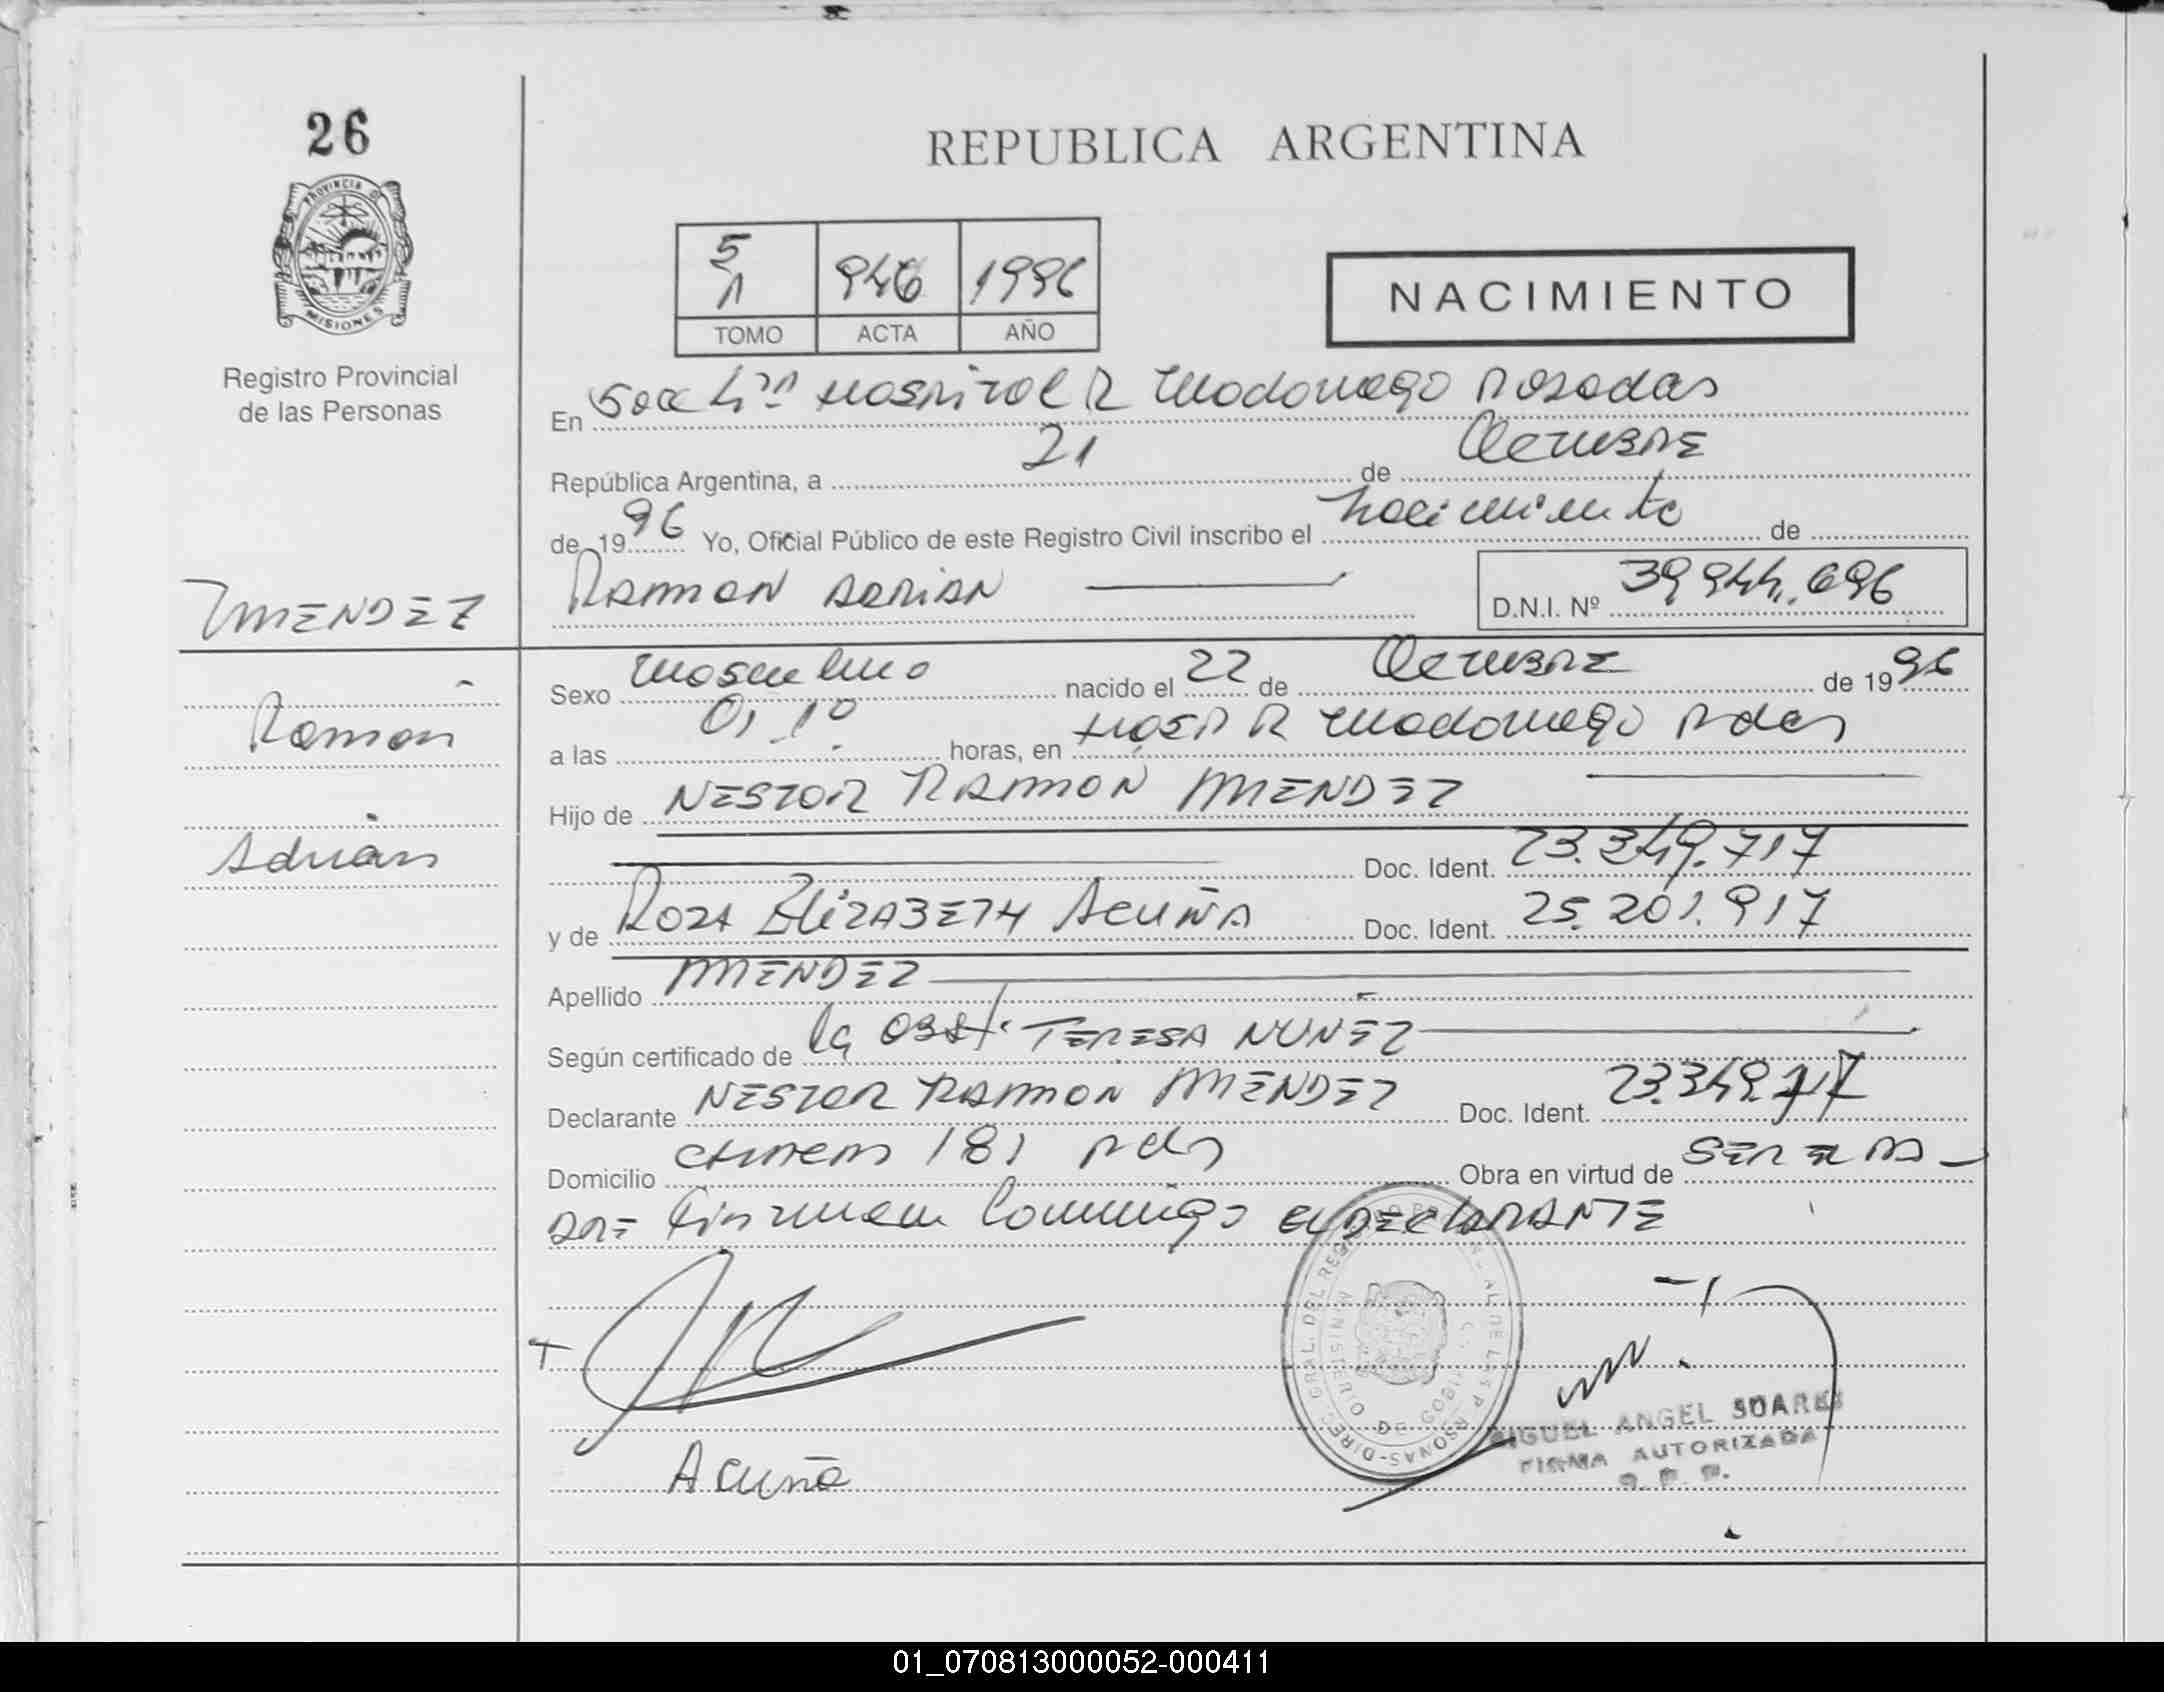 26
PROVINCIA DE
MISIONES
Registro Provincial
de las Personas
REPUBLICA ARGENTINA
5
1
946 1996
TOMO ACTA AÑO
NACIMIENTO
En Hospital R Madariaga Posadas
República Argentina, a 21 de Octubre
de 1996 Yo, Oficial Público de este Registro Civil inscribo el nacimiento de
RAMON ADRIAN D.N.I. Nº 39.944.696
MENDEZ
Ramon
Adrian
Sexo masculino nacido el 22 de Octubre de 1996
a las 0,10 horas, en Hosp R Madariaga Pdas
Hijo de NESTOR RAMON MENDEZ
Doc. Ident. 23.349.717
y de ROSA ELIZABETH ACUÑA Doc. Ident. 25.201.917
Apellido MENDEZ
Según certificado de la OBST. TERESA NUNEZ
Declarante NESTOR RAMON MENDEZ Doc. Ident. 23.349.717
Domicilio 181 Pdas Obra en virtud de SER EL PA
DRE firman conmigo el DECLARANTE
Acuña
MIGUEL ANGEL SUAREZ
FIRMA AUTORIZADA
01_070813000052-000411